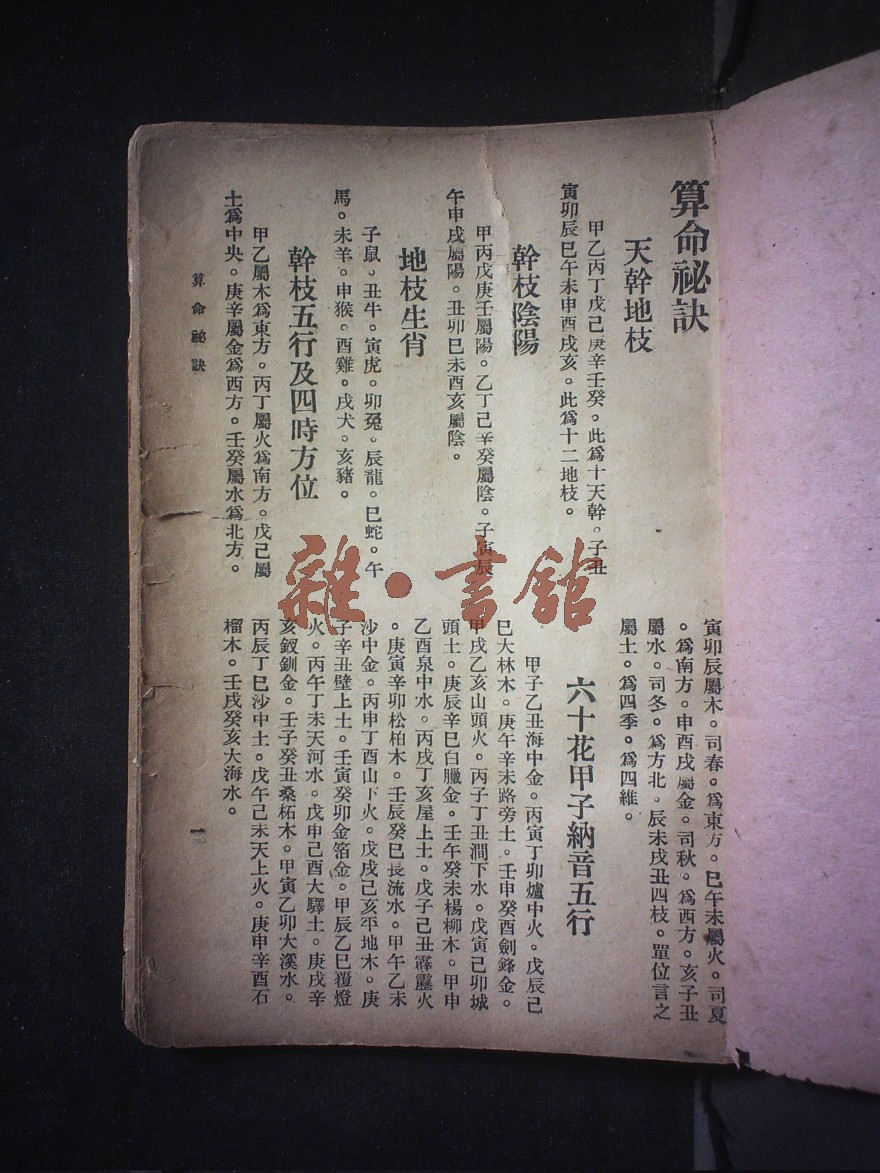 算命祕訣
天幹地枝
甲乙丙丁戊己庚辛壬癸。此爲十天幹。子丑
寅卯辰巳午未申酉戌亥。此爲十二地枝。
幹枝陰陽
甲丙戊庚壬屬陽。乙丁己辛癸屬陰。子寅辰
午申戌屬陽。丑卯巳未酉亥屬陰。
地枝生肖
子鼠。丑牛。寅虎。卯兔。辰龍。巳蛇。午
馬。未羊。申猴。酉雞。戌犬。亥豬。
幹枝五行及四時方位
甲乙屬木爲東方。丙丁屬火爲南方。戊己屬
土爲中央。庚辛屬金爲西方。壬癸屬水爲北方。
寅卯辰屬木。司春。爲東方。巳午未屬火。司夏
。爲南方。申酉戌屬金。司秋。爲西方。亥子丑
屬水。司冬。爲方北。辰未戌丑四枝。單位言之
屬土。爲四季。爲四維。
六十花甲子納音五行
甲子乙丑海中金。丙寅丁卯爐中火。戊辰己
巳大林木。庚午辛未路旁土。壬申癸酉劍鋒金。
甲戌乙亥山頭火。丙子丁丑澗下水。戊寅己卯城
頭土。庚辰辛巳白臘金。壬午癸未楊柳木。甲申
乙酉泉中水。丙戌丁亥屋上土。戊子己丑霹靂火
。庚寅辛卯松柏木。壬辰癸巳長流水。甲午乙未
沙中金。丙申丁酉山下火。戊戌己亥平地木。庚
子辛丑壁上土。壬寅癸卯金箔金。甲辰乙巳覆燈
火。丙午丁未天河水。戊申己酉大驛土。庚戌辛
亥釵釧金。壬子癸丑桑柘木。甲寅乙卯大溪水。
丙辰丁巳沙中土。戊午己未天上火。庚申辛酉石
榴木。壬戌癸亥大海水。
算命祕訣
一
雜·書館